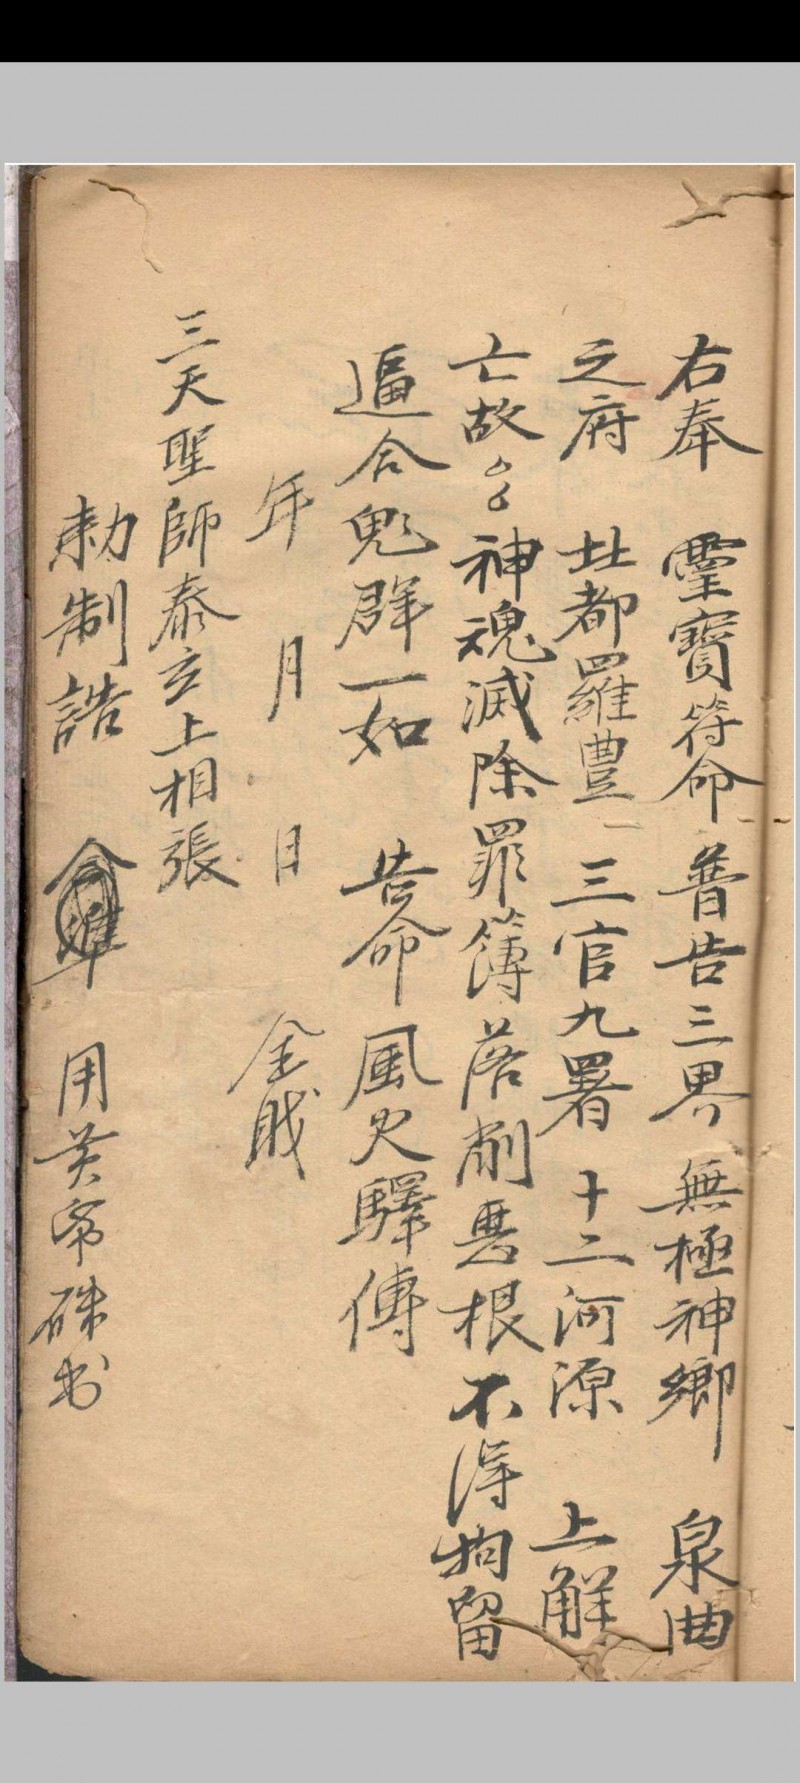 右奉　靈寶符命普告三界無極神鄉　泉曲
之府　北都羅豊　三官九署十二河源　上解
亡故厶厶神魂滅除罪簿落削惡根不得拘留
逼合鬼群一如　告命風火驛傳
年　月　日　全
三天聖師泰玄上相張
勅制誥　用黃帋硃书